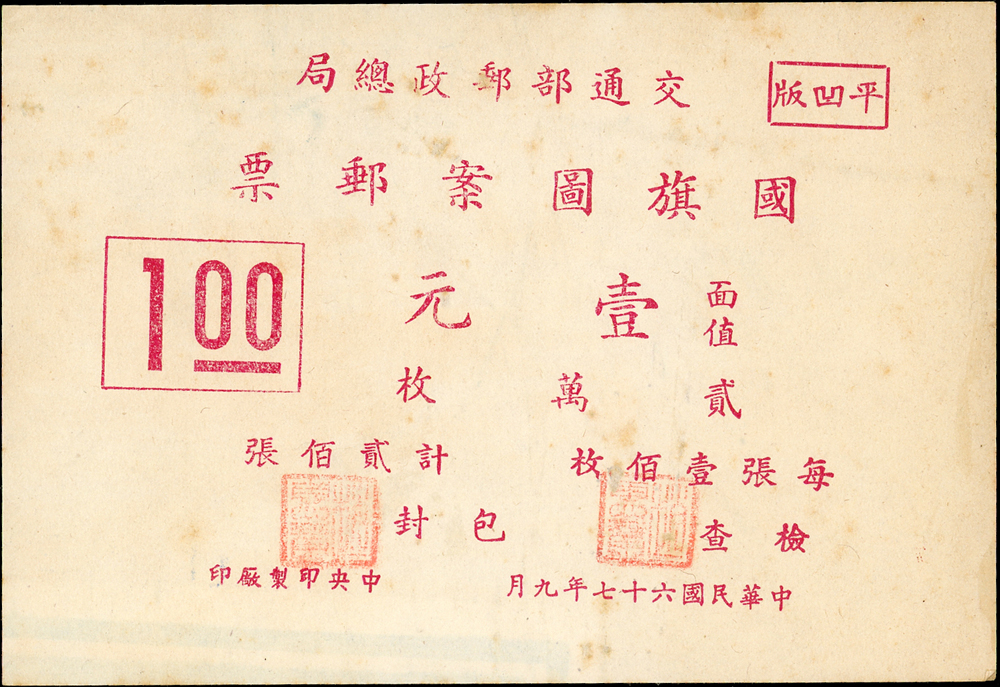 平凹版
交通部郵政總局
國旗圖案郵票
面值壹元
1.00
貳萬枚
每張壹佰枚 計貳佰張
檢查 包封
中華民國六十七年九月 中央印製廠印